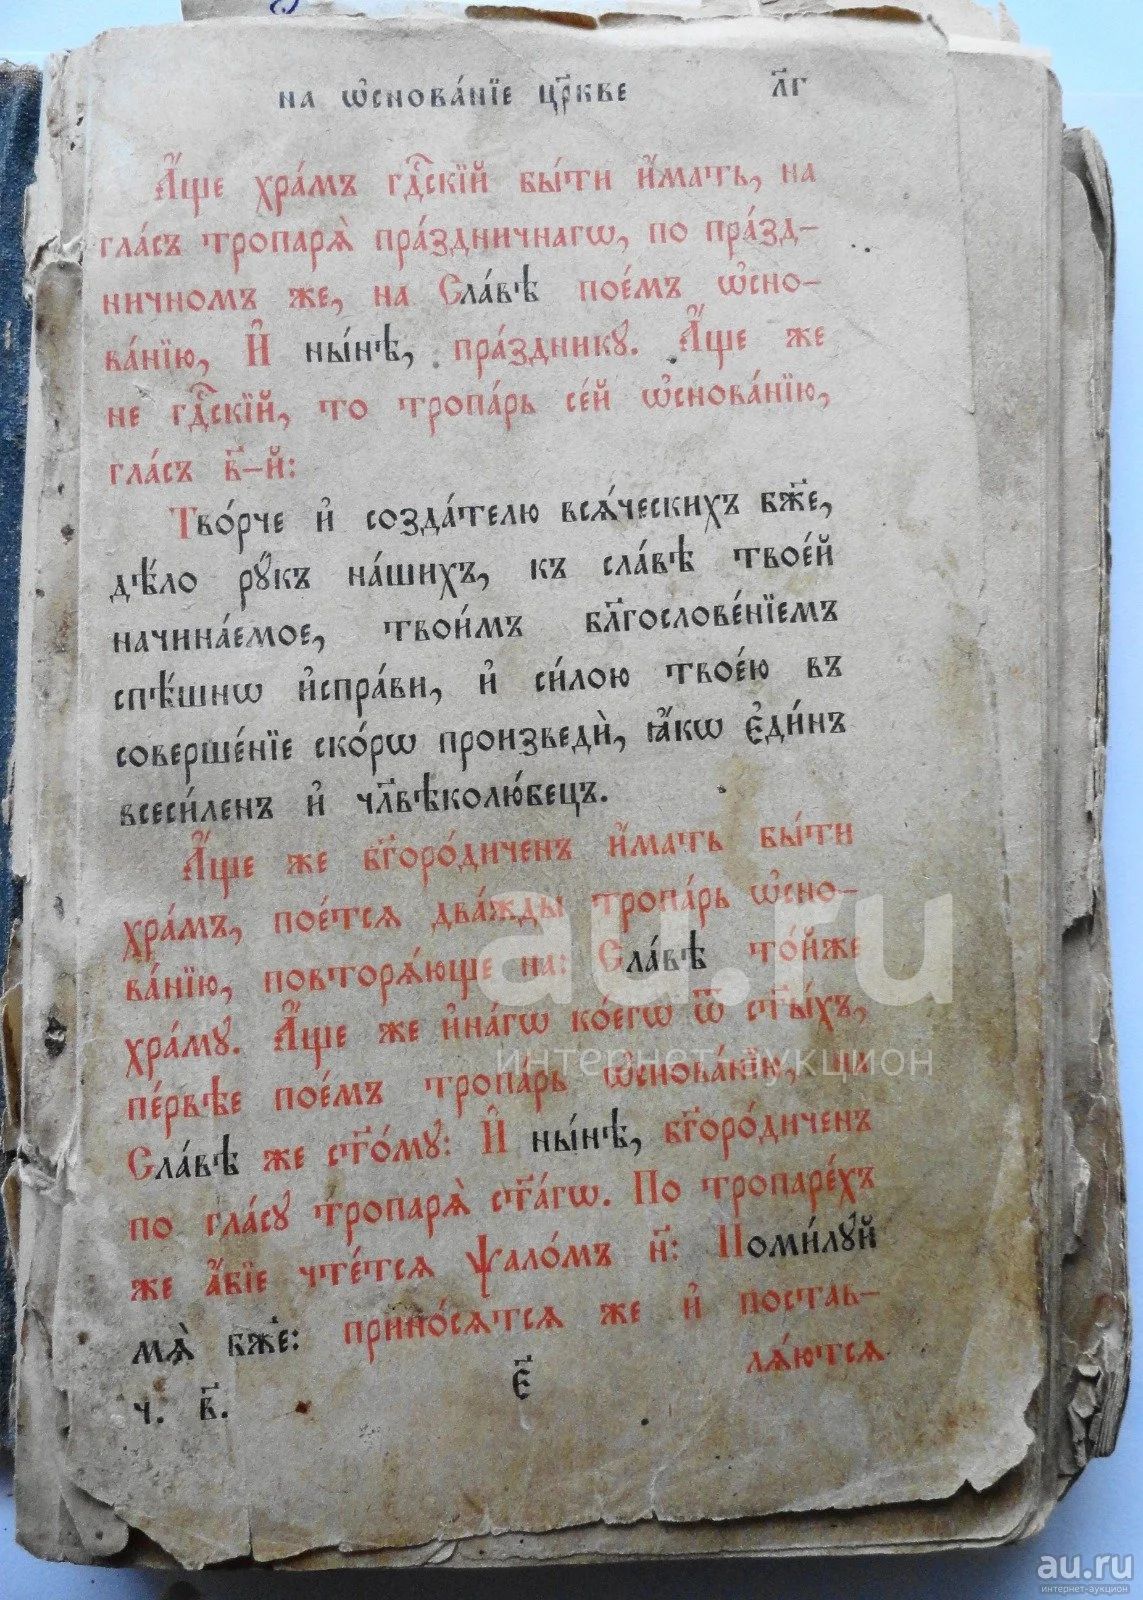 на ѡ҆снова́нїе цр҃кве л҃г
А҆́ще хра́мъ гдⷭ҇скїй бы́ти и҆́мать, на
гла́съ тропарѧ̀ пра́здничнагѡ, по пра́зд-
ничномъ же, на Сла́вѣ пое́мъ ѡ҆сно-
ва́нїю, И҆ ны́нѣ, пра́зднику. А҆́ще же
не гдⷭ҇скїй, то тропа́рь се́й ѡ҆снова́нїю,
гла́съ в҃-й:
Тво́рче и҆ созда́телю всѧ́ческихъ бж҃е,
дѣ́ло рꙋ́къ на́шихъ, къ сла́вѣ твое́й
начина́емое, твои́мъ бл҃гослове́нїемъ
спѣ́шнѡ и҆спра́ви, и҆ си́лою твое́ю въ
соверше́нїе ско́рѡ произведѝ, ꙗ҆́кѡ є҆ди́нъ
всеси́ленъ и҆ чл҃вѣколю́бецъ.
А҆́ще же бг҃оро́диченъ и҆́мать бы́ти
хра́мъ, пое́тсѧ два́жды тропа́рь ѡ҆сно-
ва́нїю, повторѧ́юще на: Сла́вѣ то́йже
хра́мꙋ. А҆́ще же и҆на́гѡ ко́егѡ ѿ ст҃ы́хъ,
пе́рвѣе пое́мъ тропа́рь ѡ҆снова́нїю, на
Сла́вѣ же ст҃о́мꙋ: И҆ ны́нѣ, бг҃оро́диченъ
по гла́сꙋ тропарѧ̀ ст҃а́гѡ. По тропаре́хъ
же а҆́бїе чте́тсѧ ѱало́мъ н҃: Поми́лꙋй
мѧ̀ бж҃е: прино́сѧтсѧ же и҆ поставь-
лѧ́ютсѧ
ч. в҃. є҃
au.ru
интернет-аукцион
au.ru
интернет-аукцион